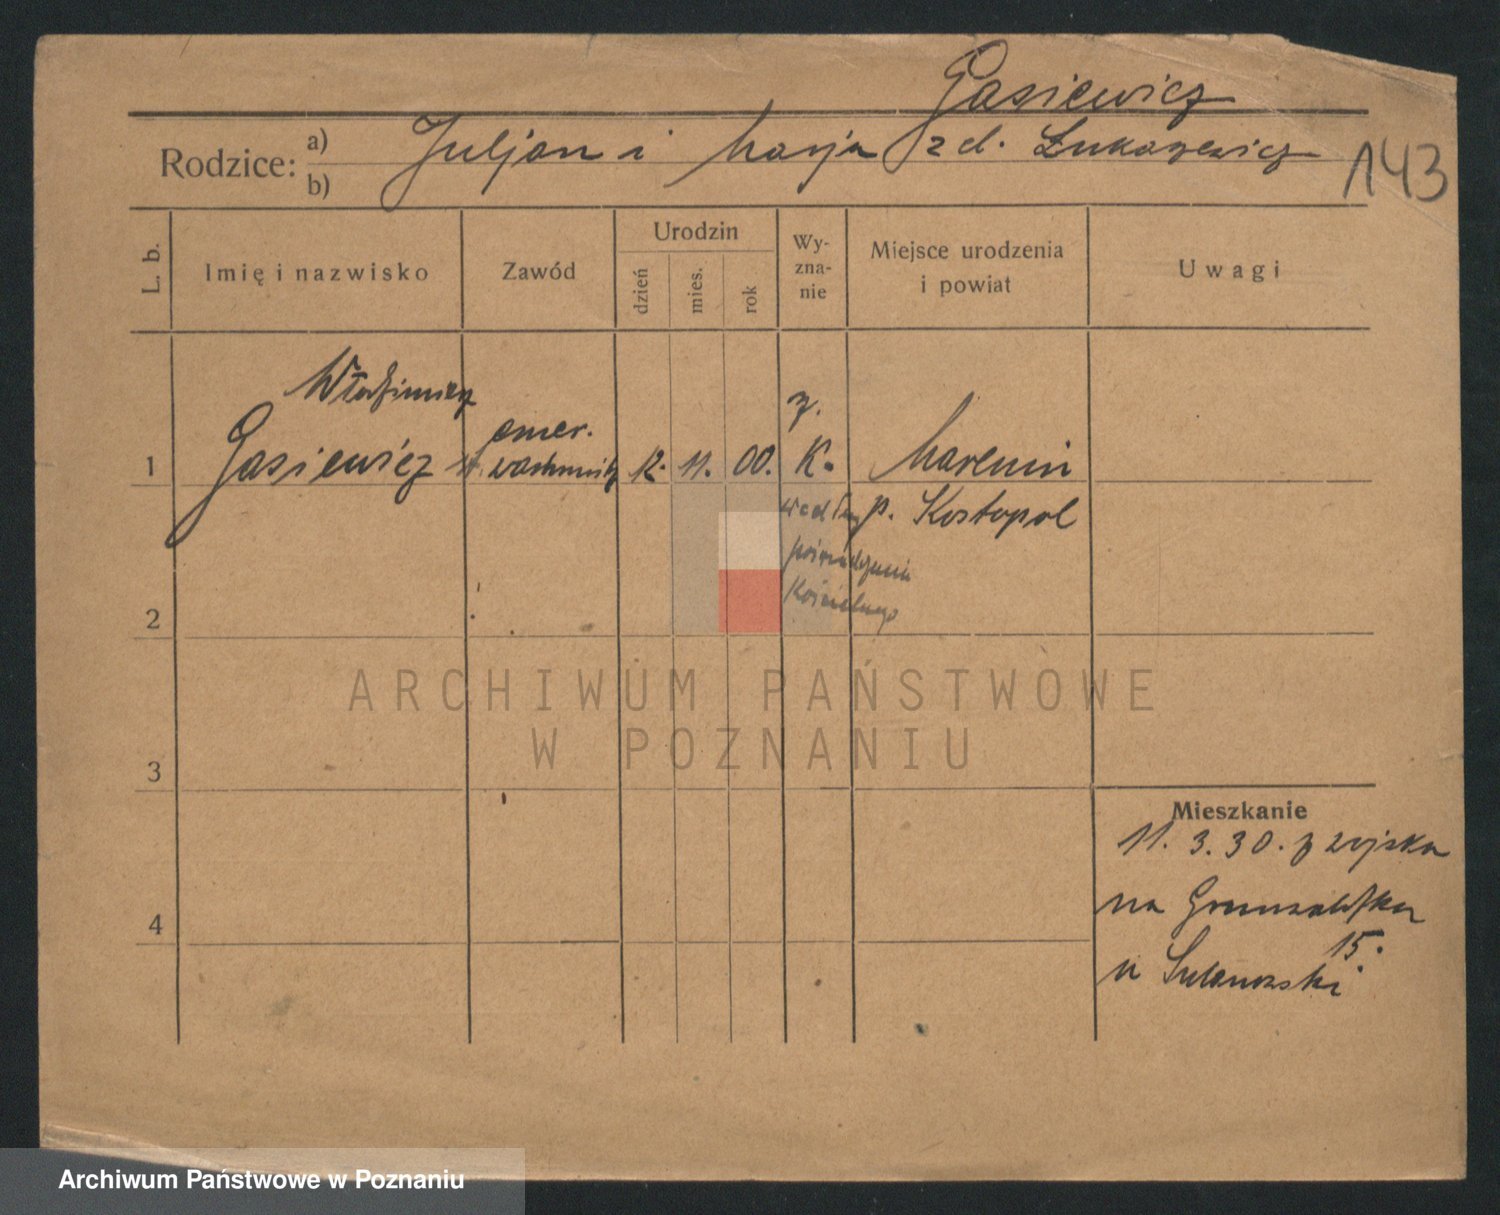 Gasiewicz
Rodzice: a) Juljan i Marja z d. Łukaszewicz
b)
143
L. b.
Imię i nazwisko
Zawód
Urodzin
dzień
mies.
rok
Wy-
zna-
nie
Miejsce urodzenia
i powiat
Uwagi
Włodzimierz
1 Gasiewicz st. emer.
wachmistrz 12. 11. 00. rz.
K. Marenin
p. Kostopol
według
poświadczenia
kościelnego
2
ARCHIWUM PAŃSTWOWE
W POZNANIU
3
4
Mieszkanie
11. 3. 30. z wojska
na Grunwaldzka
15.
u
Archiwum Państwowe w Poznaniu